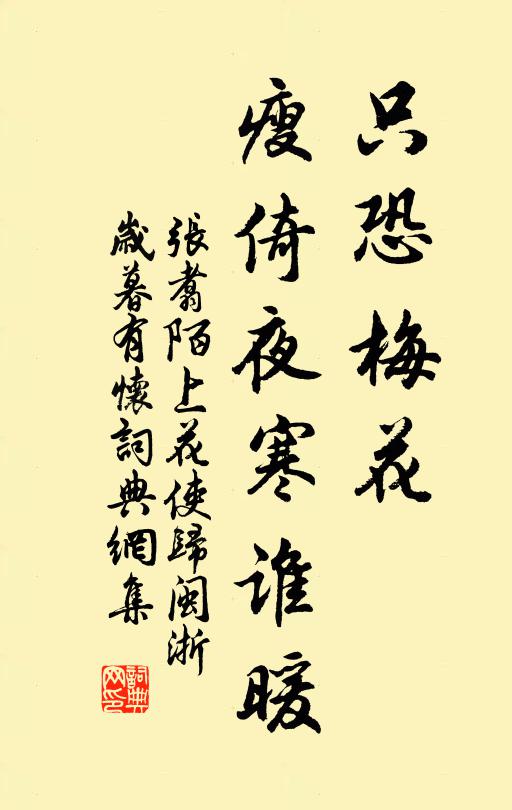 只恐梅花
瘦倚夜寒谁暖
張翥陌上花使歸閩浙
歲暮有懷詞典網集
詞典
网印